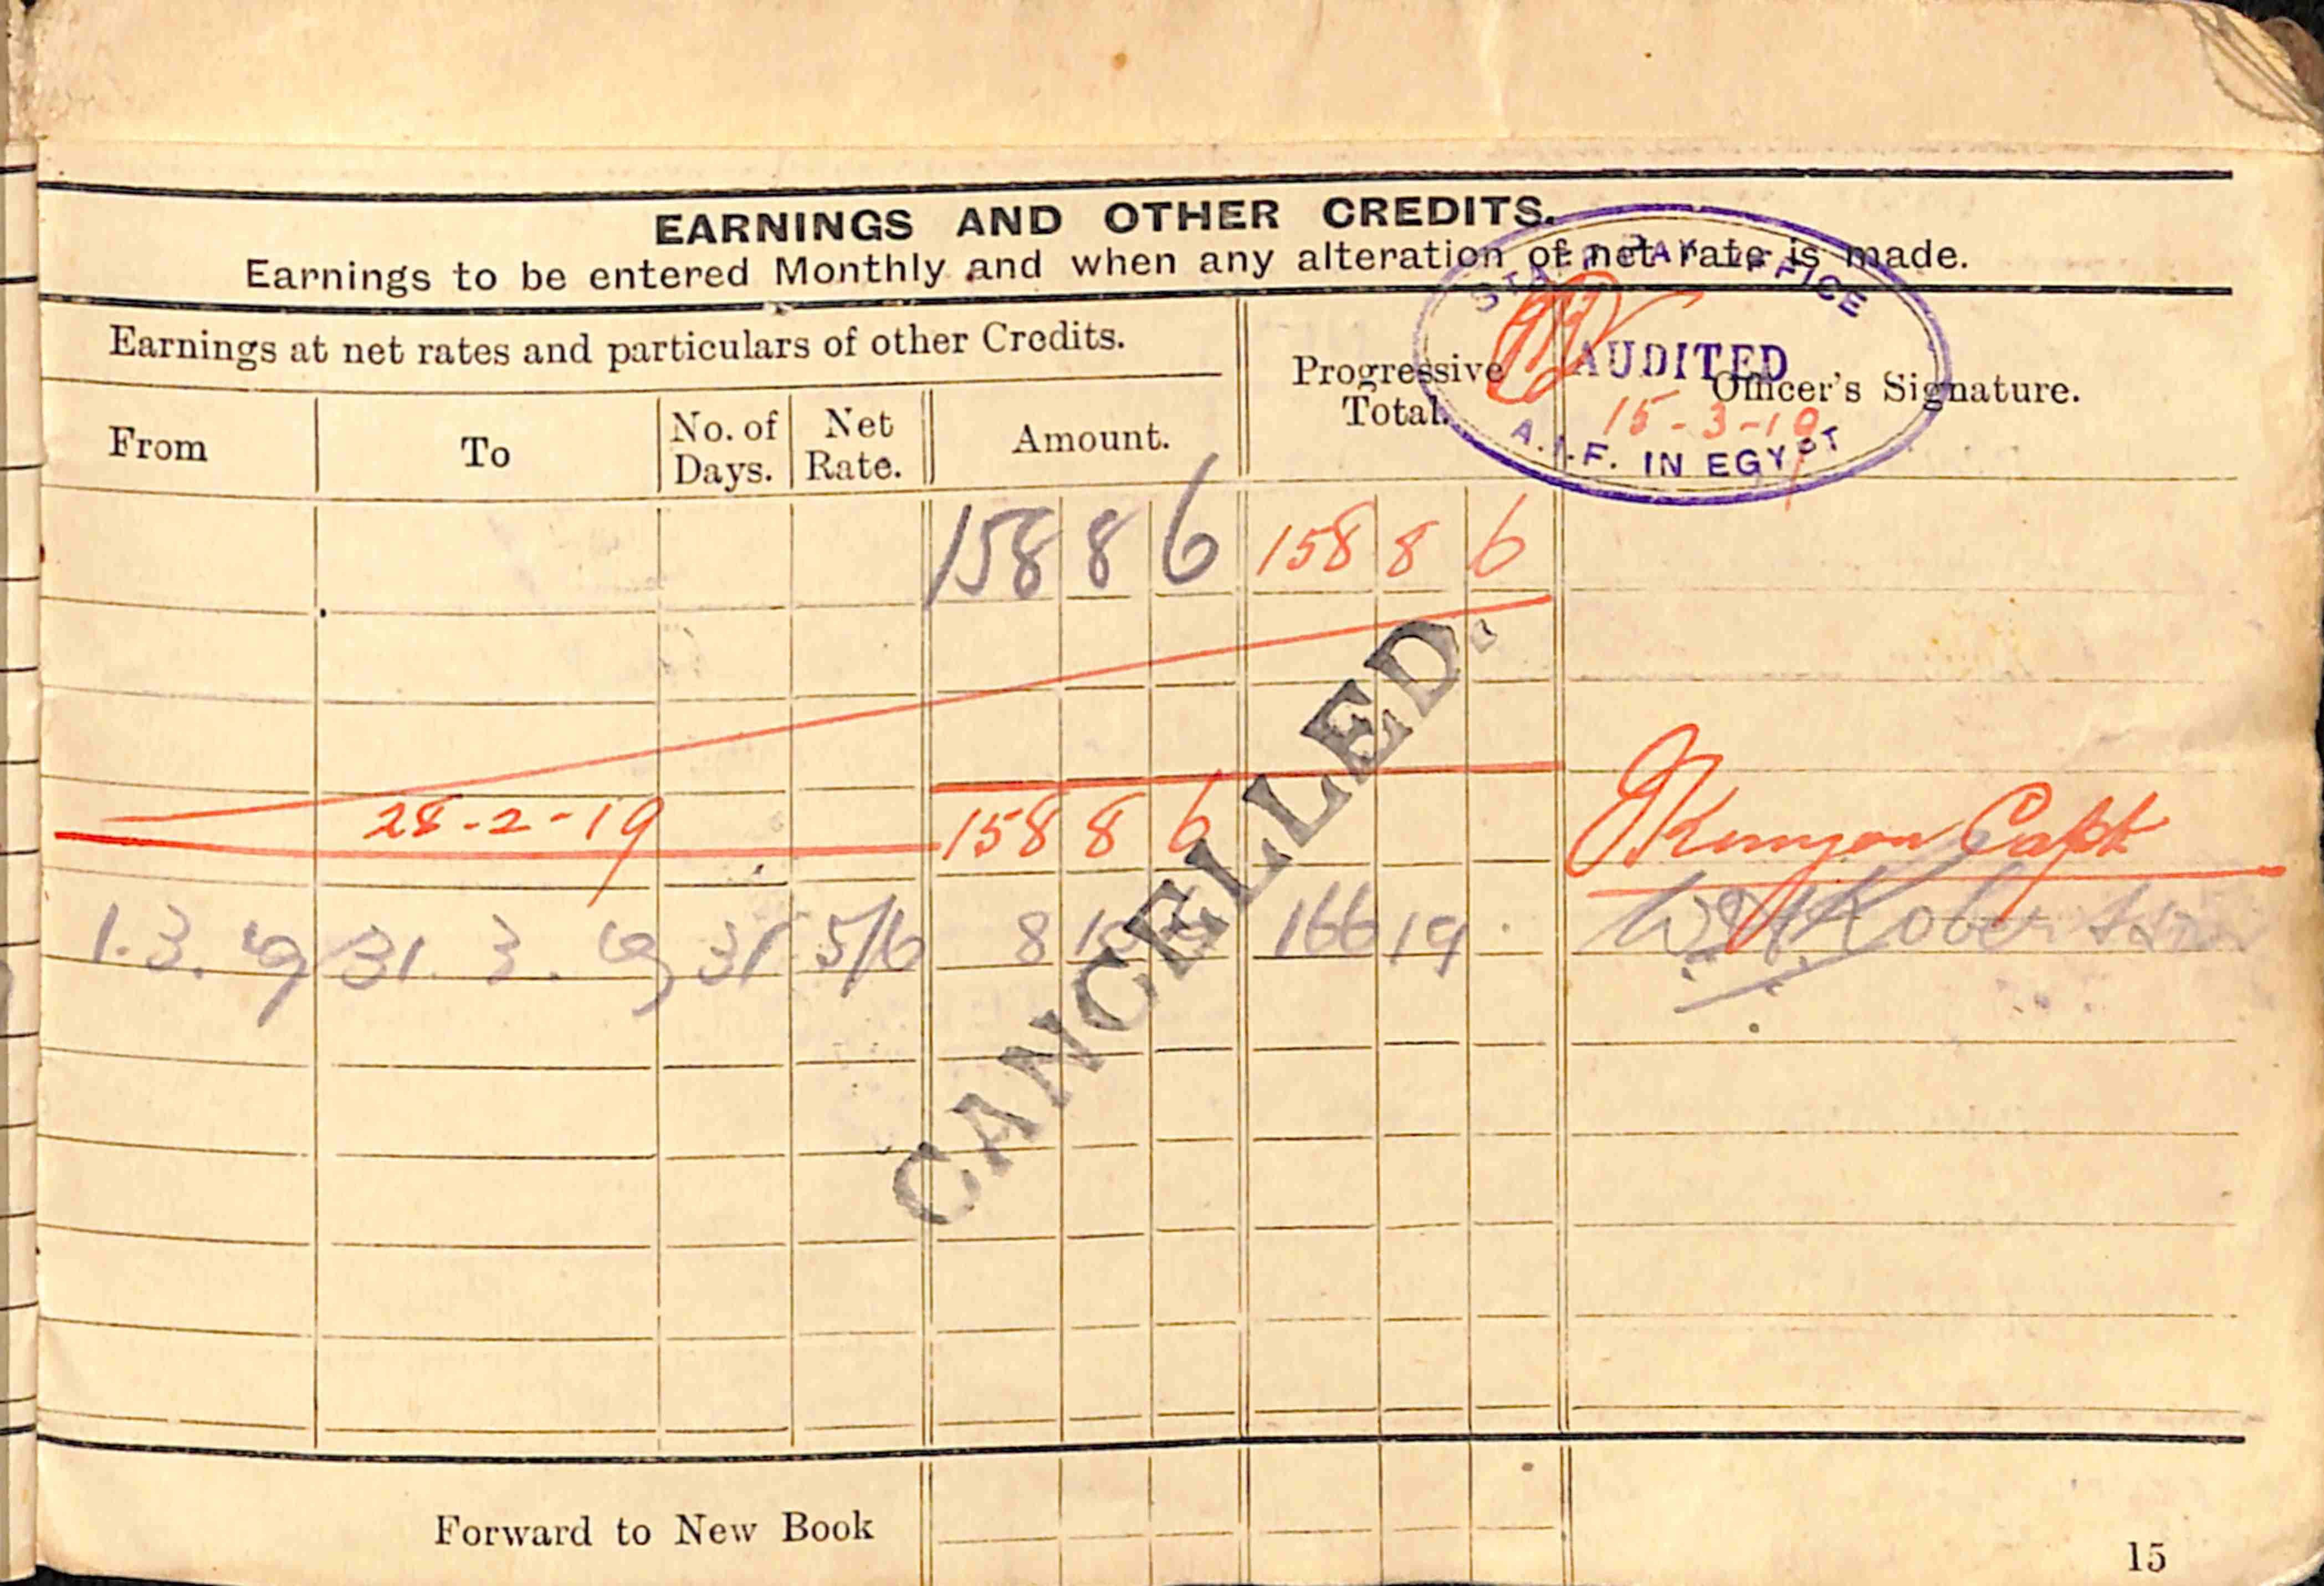 EARNINGS AND OTHER CREDITS.
Earnings to be entered Monthly and when any alteration of net rate is made.
STAFF PAY OFFICE
AUDITED
15-3-19
A.I.F. IN EGYPT
Earnings at net rates and particulars of other Credits.
Progressive Total.
Officer's Signature.
From To No. of Days. Net Rate. Amount.
158 8 6 158 8 6
28-2-19 158 8 6 Capt
1.3.19 31.3.19 31 5/6 8 10 6 166 19 Robertson
CANCELLED.
Forward to New Book
15